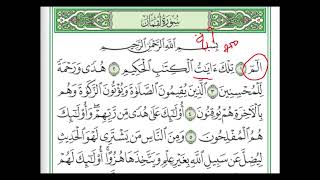 سُورَةُ لُقْمَانَ
بِسْمِ اللَّهِ الرَّحْمَٰنِ الرَّحِيمِ
الٓمٓ ١ تِلْكَ ءَايَٰتُ الْكِتَٰبِ الْحَكِيمِ ٢ هُدًى وَرَحْمَةً
لِّلْمُحْسِنِينَ ٣ الَّذِينَ يُقِيمُونَ الصَّلَوٰةَ وَيُؤْتُونَ الزَّكَوٰةَ وَهُم
بِالْءَاخِرَةِ هُمْ يُوقِنُونَ ٤ أُولَٰٓئِكَ عَلَىٰ هُدًى مِّن رَّبِّهِمْ وَأُولَٰٓئِكَ
هُمُ الْمُفْلِحُونَ ٥ وَمِنَ النَّاسِ مَن يَشْتَرِي لَهْوَ الْحَدِيثِ
لِيُضِلَّ عَن سَبِيلِ اللَّهِ بِغَيْرِ عِلْمٍ وَيَتَّخِذَهَا هُزُوًا أُولَٰٓئِكَ لَهُمْ